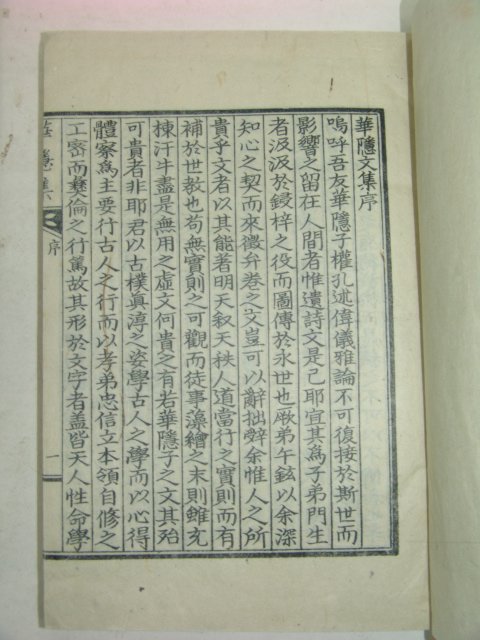 華隱文集序
嗚呼吾友華隱子權孔述偉儀雅論不可復接於斯世而
影響之留在人間者惟遺詩文是已耶宜其爲子弟門生
者汲汲於鋟梓之役而圖傳於永世也厥弟午鉉以余深
知心之契而來徵弁卷之文豈可以辭拙辭余惟人之所
貴乎文者以其能著明天叙天秩人道當行之實則而有
補於世敎也苟無實則之可觀而徒事藻繪之末則雖充
棟汗牛盡是無用之虛文何貴之有若華隱子之文其殆
可貴者非耶君以古樸眞淳之姿學古人之學而以心得
體察爲主要行古人之行而以孝弟忠信立本領自修之
工密而彛倫之行篤故其形於文字者盖皆天人性命學
華隱集
序
一